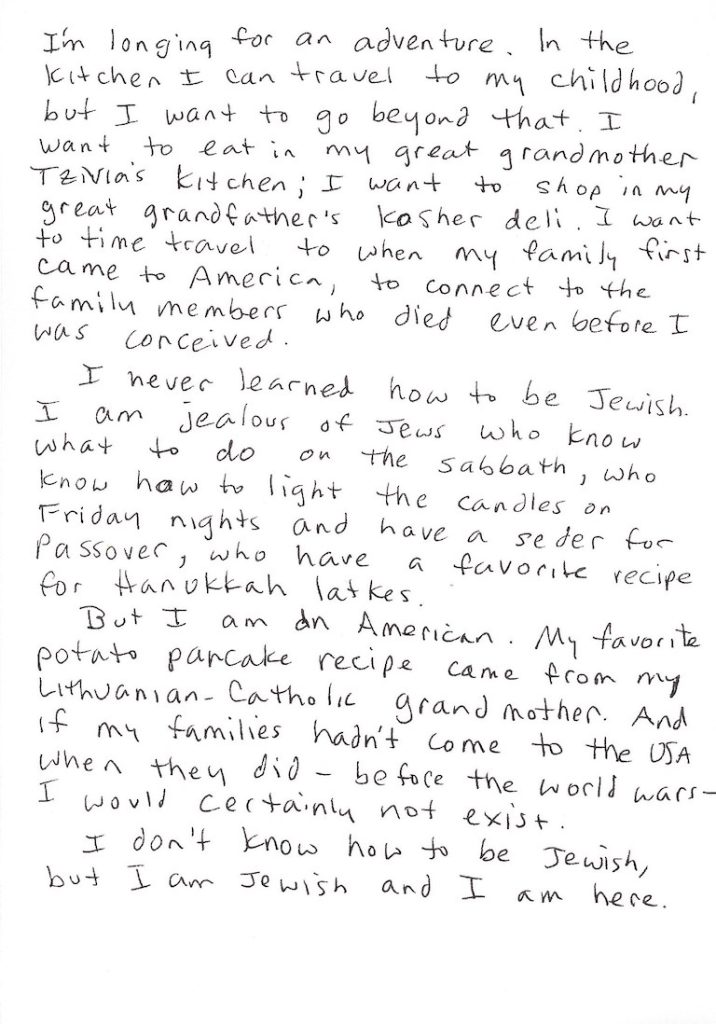 I'm longing for an adventure. In the
kitchen I can travel to my childhood,
but I want to go beyond that. I
want to eat in my great grandmother
Tzivia's kitchen; I want to shop in my
great grandfather's kosher deli. I want
to time travel to when my family first
came to America, to connect to the
family members who died even before I
was conceived.
I never learned how to be Jewish.
I am jealous of Jews who know
what to do on the sabbath, who
know how to light the candles on
Friday nights and have a seder for
Passover, who have a favorite recipe
for Hanukkah latkes.
But I am an American. My favorite
potato pancake recipe came from my
Lithuanian-Catholic grandmother. And
if my families hadn't come to the USA
when they did – before the world wars–
I would certainly not exist.
I don't know how to be Jewish,
but I am Jewish and I am here.